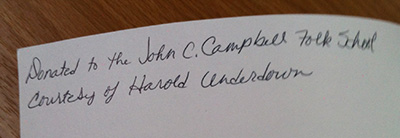 Donated to the John C. Campbell Folk School
Courtesy of Harold Underdown